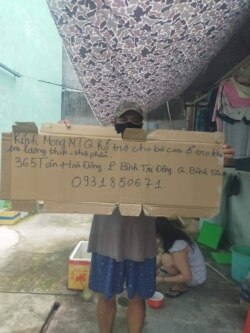 Kính Mong MTQ hổ trợ cho bà con ở trọ khu
ẩm lương thực - thực phẩm
365 Tân Hoà Đông P Bình Trị Đông Q Bình Tân
0931850671